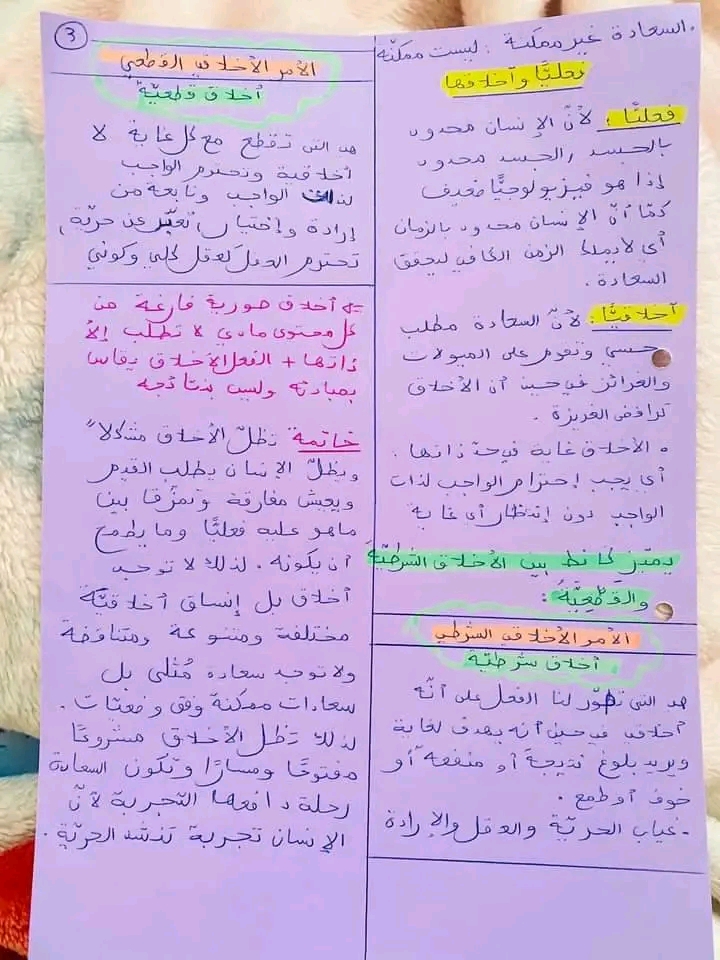 السعادة غير ممكنة : ليست ممكنة
فعليًّا وأخلاقيًّا
فعليًّا : لأنّ الإنسان محدود
بالجسد، الجسد محدود
إذا هو فيزيولوجيًّا ضعيف
كمّا أنّ الإنسان محدود بالزمان
أي لا يملك الزمن الكافي ليحقق
السعادة .
أخلاقيًّا : لأنّ السعادة مطلب
حسي وتقوم على الميولات
والغرائز في حين أن الأخلاق
ترافض الغريزة .
• الأخلاق غاية في حدّ ذاتها .
أي يجب إحترام الواجب لذات
الواجب دون إنتظار أي غاية
يميّز كانط بين الأخلاق الشرطيّة
والقطعيّة :
الأمر الأخلاقي الشرطي
أخلاق شرطيّة
هي التي تصوّر لنا الفعل على أنّه
أخلاقي في حين أنه يهدف لغاية
ويريد بلوغ نتيجة أو منفعة أو
خوف أو طمع .
- غياب الحريّة والعقل والإرادة
3
الأمر الأخلاقي القطعي
أخلاق قطعيّة
هي التي تقطع مع كل غاية لا
أخلاقية وتحترم الواجب
لذات الواجب ونابعة من
إرادة وإختيار، تعبّر عن حريّة،
تحترم العقل كعقل كلي وكوني
⇐ أخلاق صورية فارغة من
كل محتوى مادي لا تطلب إلاّ
ذاتها + الفعل الأخلاقي يقاس
بمبادئه وليس بنتائجه
خاتمة تظلّ الأخلاق مشكلاً
ويظلّ الإنسان يطلب القيم
ويعيش مفارقة وتمزّقا بين
ماهو عليه فعليًّا وما يطمح
أن يكونه . لذلك لا توجد
أخلاق بل إنساق أخلاقيّة
مختلفة ومتنوعة ومتناقضة
ولا توجد سعادة مُثلى بل
سعادات ممكنة وفق وضعيّات .
لذلك تظل الأخلاق مشروعًا
مفتوحًا ومسارًا وتكون السعادة
رحلة دافعها التجربة لأنّ
الإنسان تجربة تنشد الحريّة .